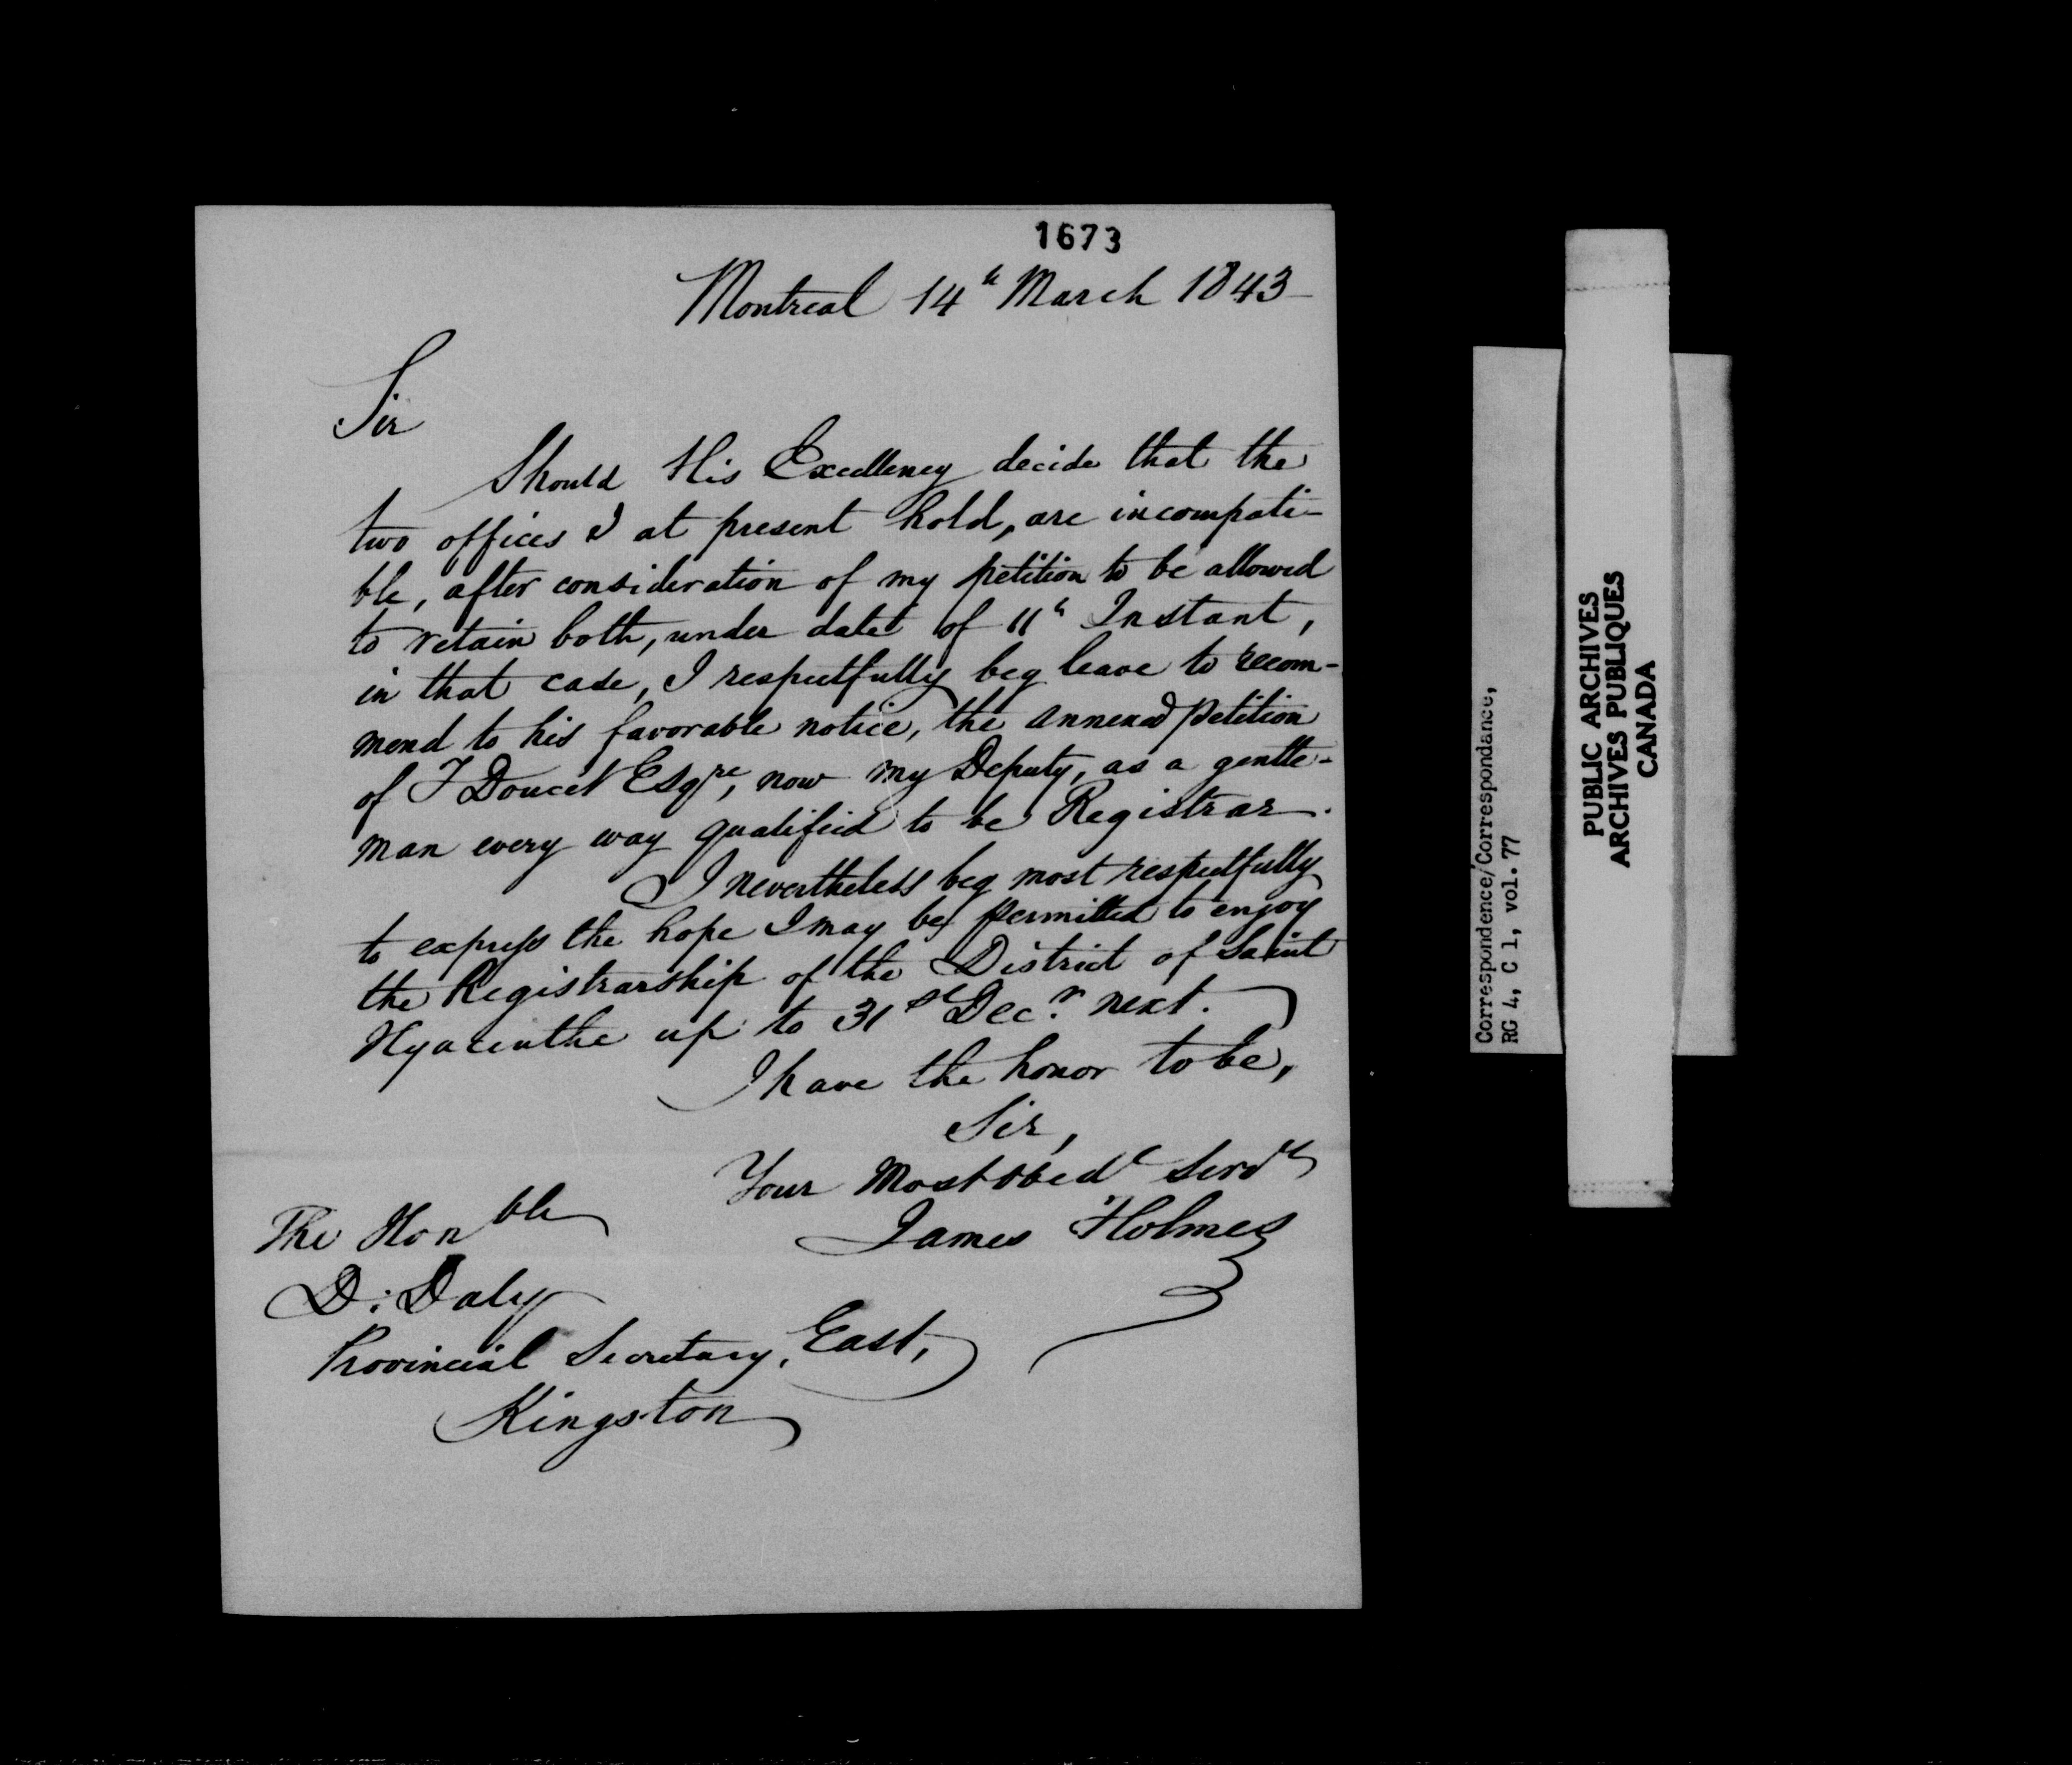 1673
Montreal 14th March 1843
Sir
Should His Excellency decide that the
two offices I at present hold, are incompati-
ble, after consideration of my petition to be allowed
to retain both, under date of 11th Instant,
in that case, I respectfully beg leave to recom-
mend to his favorable notice, the annexed petition
of T Doucet Esqre, now my Deputy, as a gentle-
man every way qualified to be Registrar.
I nevertheless beg most respectfully
to express the hope I may be permitted to enjoy
the Registrarship of the District of Saint
Hyacinthe up to 31st Decr. next.
I have the honor to be,
Sir,
Your Most obedt Servt
James Holmes
The Honble
D. Daly
Provincial Secretary, East,
Kingston
Correspondence/Correspondance,
RG 4, C 1, vol. 77
PUBLIC ARCHIVES
ARCHIVES PUBLIQUES
CANADA